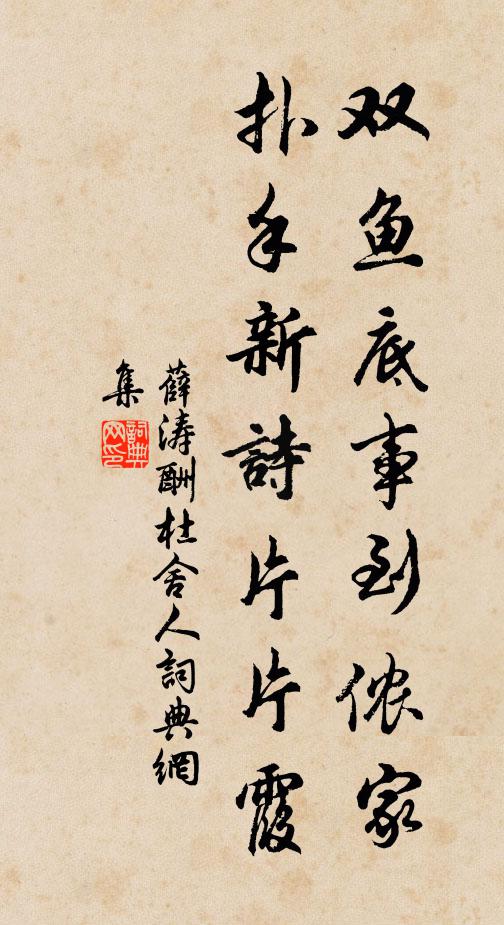 双鱼底事到侬家
扑手新詩片片霞
薛涛酬杜舍人詞典網
集
詞典網印